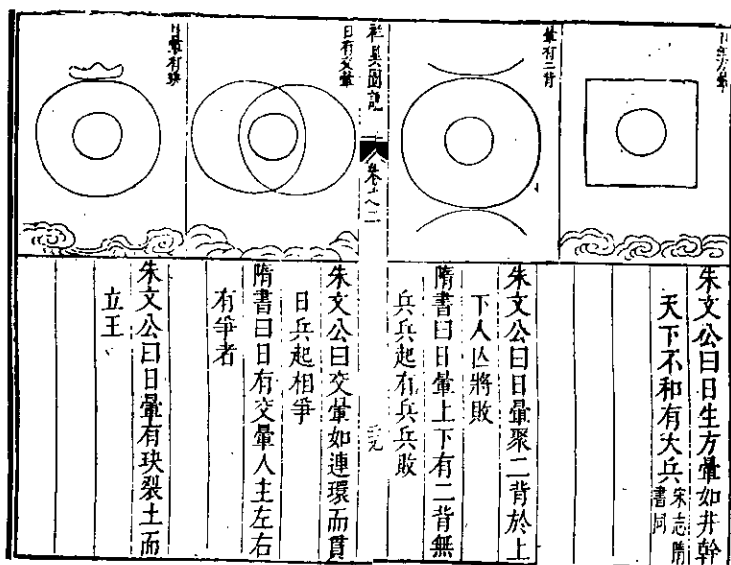 日生方暈
朱文公曰日生方暈如井幹
天下不和有大兵宋志隋
書同
暈有二背
朱文公曰日暈聚二背於上
下人亾將敗
隋書曰日暈上下有二背無
兵兵起有兵兵敗
祥異圖說
卷之二
日有交暈
朱文公曰交暈如連環而貫
日兵起相爭
隋書曰日有交暈人主左右
有爭者
日暈有玦
朱文公曰日暈有玦裂土而
立王